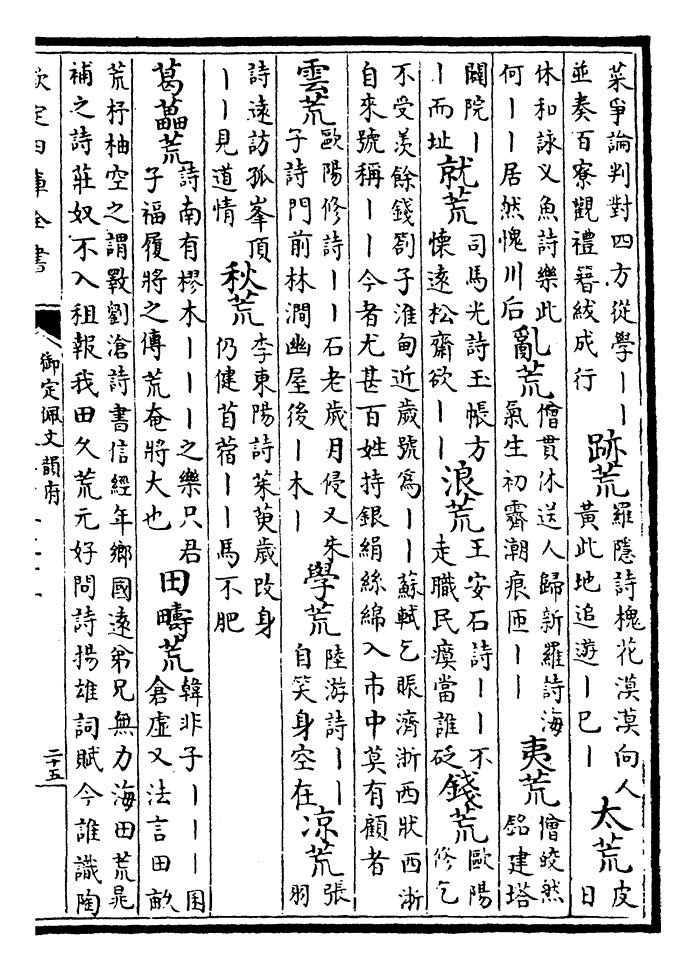 菜爭論判對四方從學｜｜
並奏百寮觀禮簪紱成行
跡荒
羅隱詩槐花漠漠向人
黃此地追遊｜已｜
太荒
皮
日
休和詠乂魚詩樂此
何｜｜居然愧川后
亂荒
僧貫休送人歸新羅詩海
氣生初霽潮痕匝｜｜
夷荒
僧皎然
銘建塔
闕院｜
｜而址
就荒
司馬光詩玉帳方
懷遠松齋欲｜｜
浪荒
王安石詩｜｜不
走職民瘼當誰砭
錢荒
歐陽
修乞
不受羨餘錢劄子淮甸近歲號為｜｜蘇軾乞賑濟浙西狀西浙
自來號稱｜｜今者尤甚百姓持銀絹絲綿入市中莫有顧者
雲荒
歐陽修詩｜｜石老歲月侵又朱
子詩門前林澗幽屋後｜木｜
學荒
陸游詩｜｜
自笑身空在
凉荒
張
羽
詩遠訪孤峯頂
｜｜見道情
秋荒
李東陽詩茱萸歲改身
仍健苜蓿｜｜馬不肥
葛藟荒
詩南有樛木｜｜｜之樂只君
子福履將之傳荒奄將大也
田疇荒
韓非子｜｜｜囷
倉虛又法言田畝
荒杼柚空之謂斁劉滄詩書信經年鄉國遠弟兄無力海田荒晁
補之詩莊奴不入租報我田久荒元好問詩揚雄詞賦今誰識陶
欽定四庫全書
御定佩文韻府
二十五